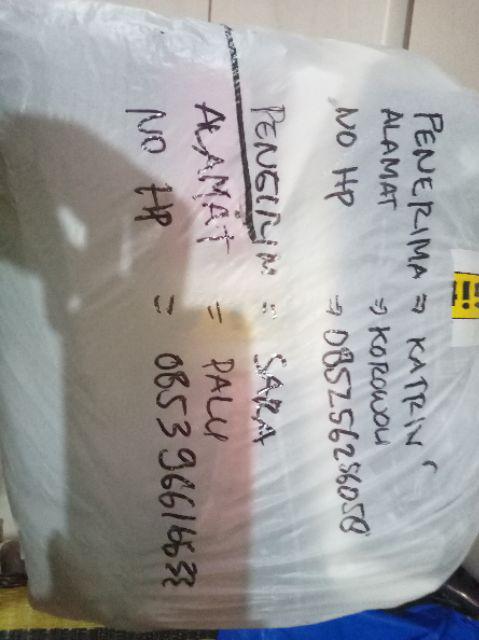 PENERIMA ⇒ KATRIN
ALAMAT ⇒ KOROWOU
NO HP ⇒ 085256286050
PENGIRIM = SARA
ALAMAT = PALU
NO HP = 085396616633